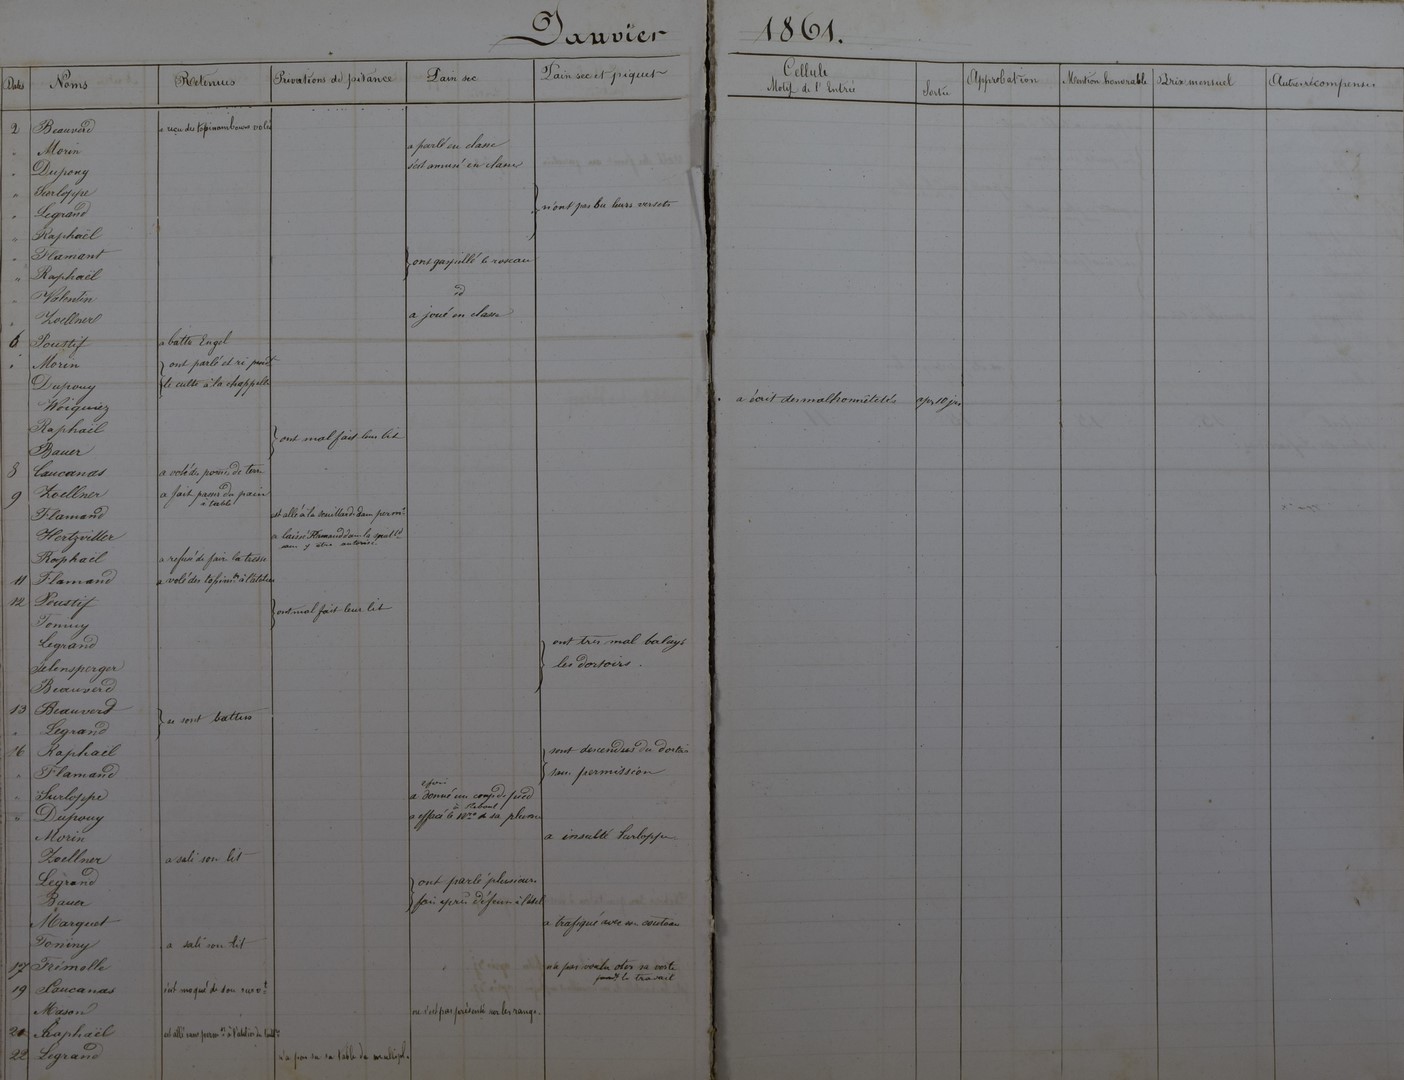 Janvier 1861.
Dates Noms Retenues Privations de pitance Pain sec Pain sec et piquet Cellule Motif de l'Entrée Sortie Approbation Mention honorable Prix mensuel Autres récompenses
2 Beauverd a reçu des topinambours volés
" Morin a parlé en classe
" Dupouy s'est amusé en classe
" Surloppe
" Legrand } n'ont pas su leurs versets
" Raphaël
" Flamant
" Raphaël } ont gaspillé le roseau
" Valentin id
" Zoellner a joué en classe
6 Poustif a battu Engel
" Morin } ont parlé et ri pendt
Dupouy le culte à la chappelle
Woiquiez a écrit des malhonnêtetés
Raphaël } ont mal fait leur lit
Bauer
8 Caucanas a volé des pommes de terre
9 Zoellner a fait passer du pain
à table
Flamand est allé à la sans permn
Hertzvitter a laissé Flamand dans la
sans y être autorisé
Raphaël a refusé de faire la tresse
11 Flamand a volé des topinrs à l'atelier
12 Poustif } ont mal fait leur lit
Tonny
Legrand } ont très mal balayé
Selensperger les dortoirs.
Beauverd
13 Beauverd } se sont battus
" Legrand
16 Raphaël } sont descendus du dortoir
" Flamand sans permission
" Surloppe a donné un coup de pied
à
" Dupouy a effacé le No de sa plume
Morin a insulté Surloppe
Zoellner a sali son lit
Legrand } ont parlé plusieurs
Bauer fois après déjeuner à l'atel
Marquet a trafiqué avec un couteau
Tonny a sali son lit
17 Trémolle n'a pas voulu oter sa veste
pendt le travail
19 Caucanas s'est moqué de son survt
Mason ne s'est pas présenté sur les rangs.
21 Raphaël est allé sans permn à l'atelier de
22 Legrand n'a pas su sa table de multipl.